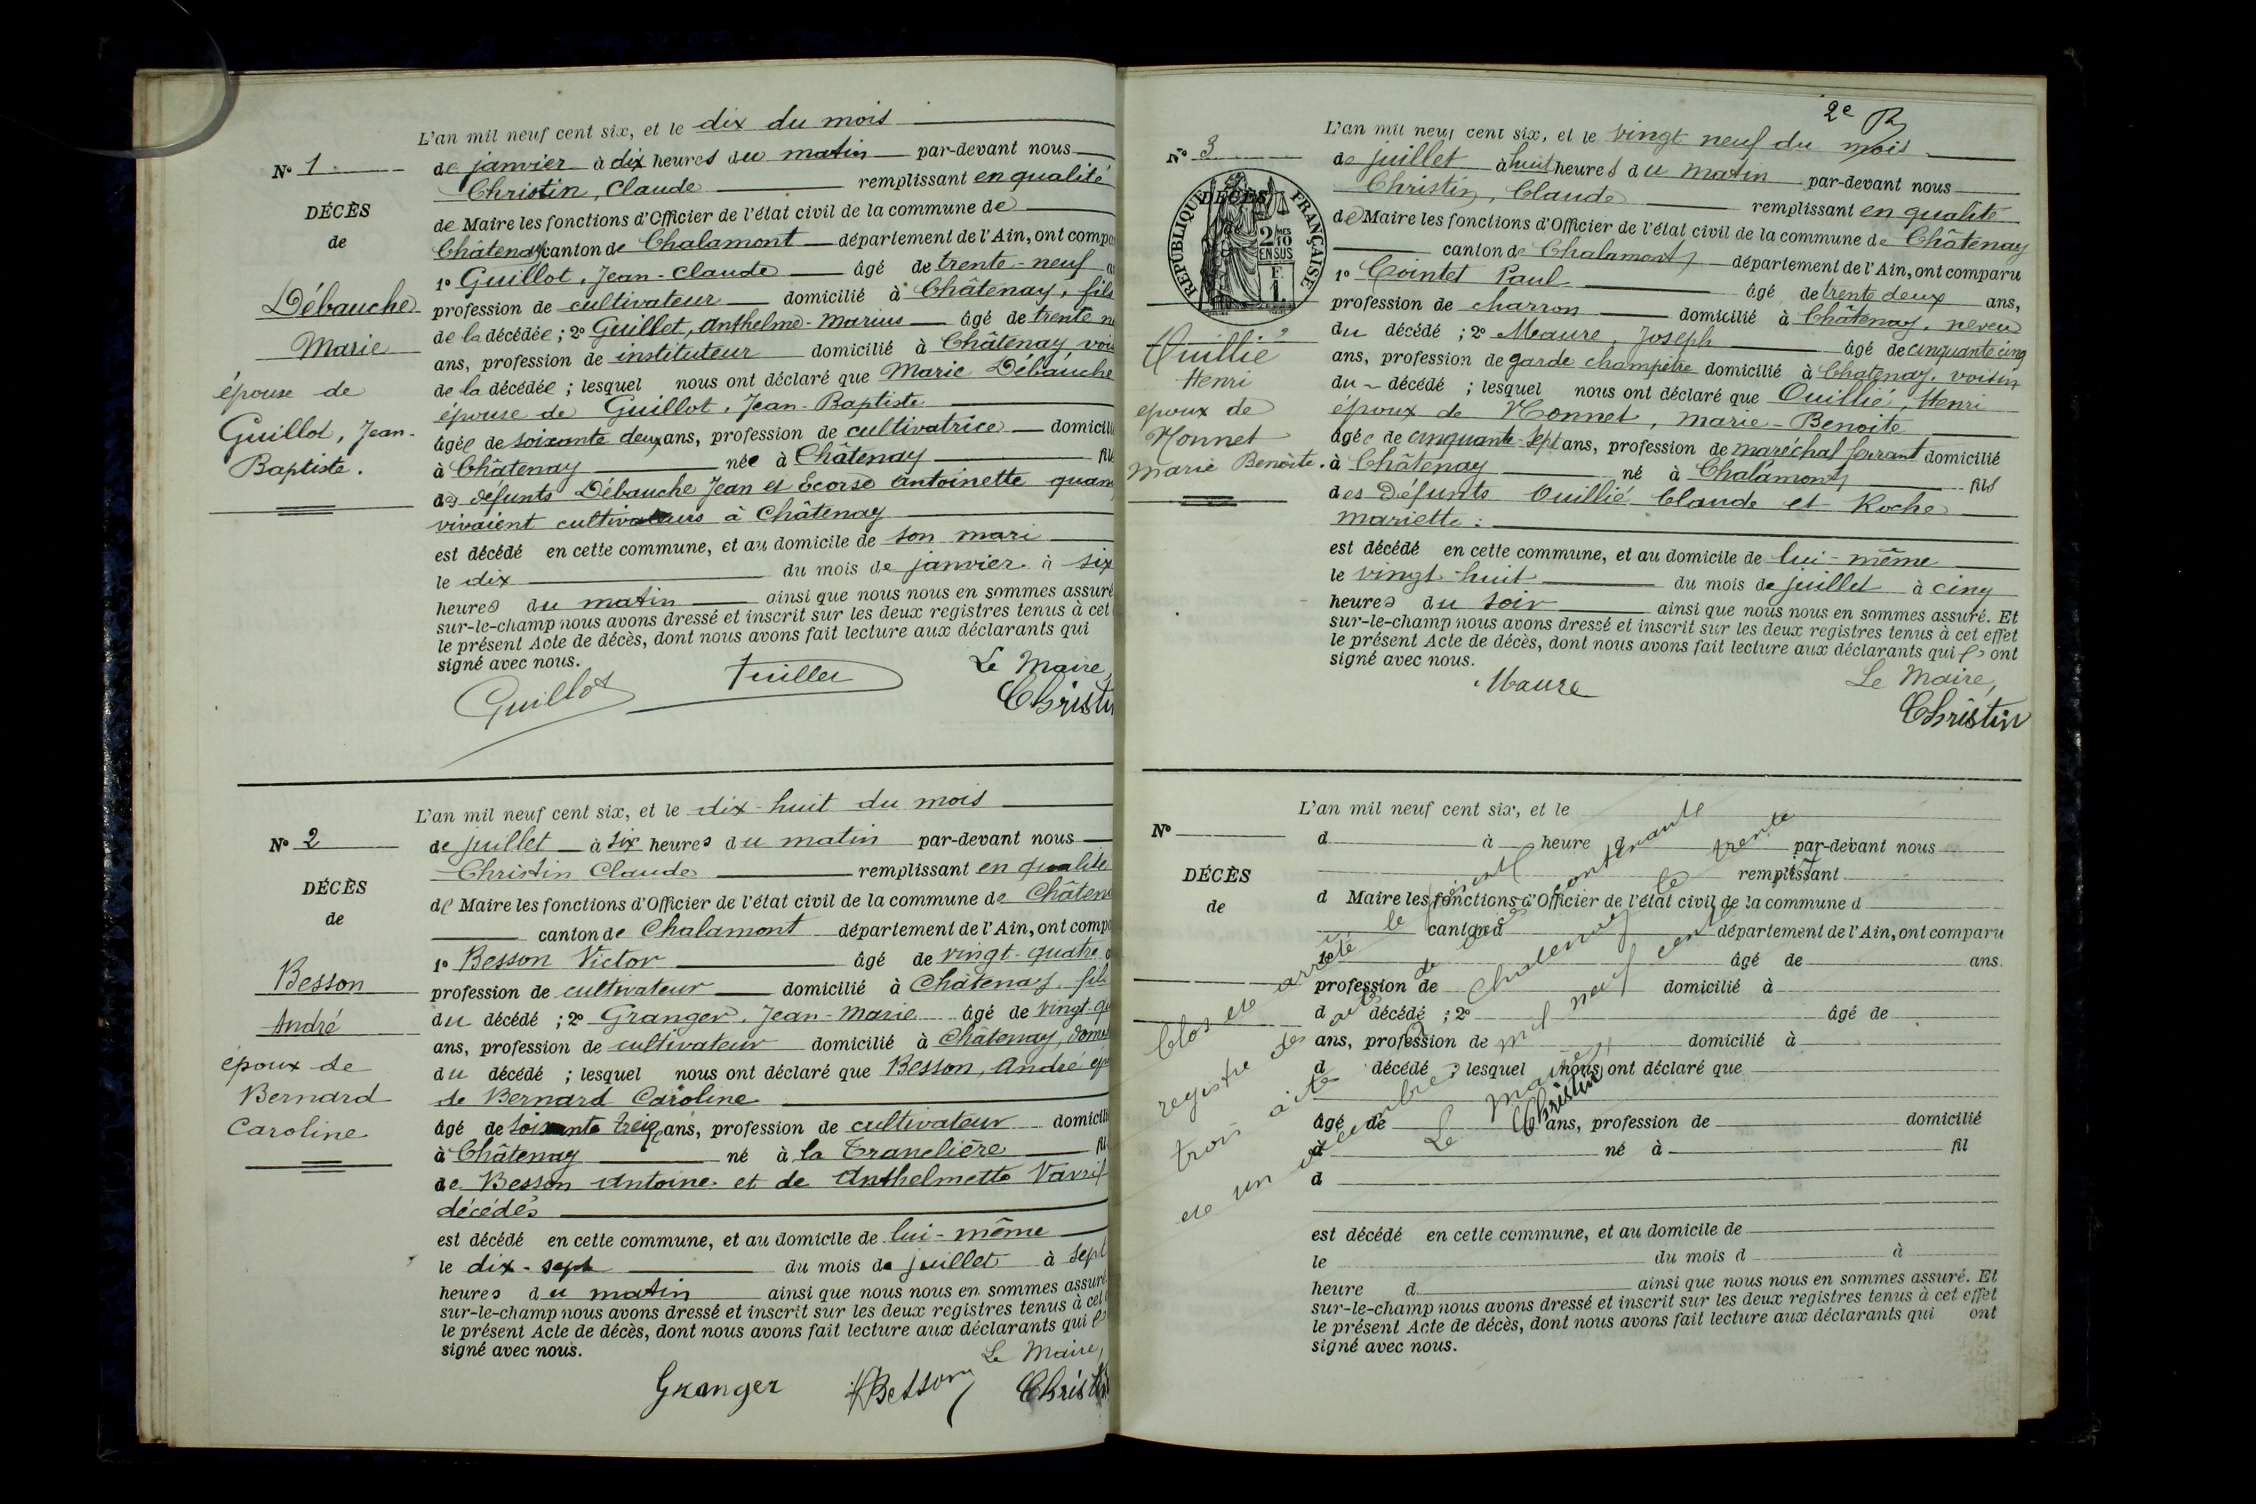 L'an mil neuf cent six, et le dix du mois
N° 1
de janvier à dix heures du matin par-devant nous
Christin, Claude remplissant en qualité
DÉCÈS
de Maire les fonctions d'Officier de l'état civil de la commune de
de
Châtenay canton de Chalamont département de l'Ain, ont compa
1° Guillot, Jean-Claude âgé de trente-neuf a
Débauche
profession de cultivateur domicilié à Châtenay, fils
de la décédée ; 2° Guillet, Anthelme-Marius âgé de trente n
Marie
ans, profession de instituteur domicilié à Châtenay voi
de la décédée ; lesquel nous ont déclaré que Marie Débauche
épouse de
épouse de Guillot, Jean-Baptiste
Guillot, Jean-
âgée de soixante deux ans, profession de cultivatrice domicili
Baptiste.
à Châtenay née à Châtenay fil
des défunts Débauche Jean et Ecorse Antoinette quan
vivaient cultivateurs à Châtenay
est décédé en cette commune, et au domicile de son mari
le dix du mois de janvier à six
heures du matin ainsi que nous nous en sommes assuré
sur-le-champ nous avons dressé et inscrit sur les deux registres tenus à cet
le présent Acte de décès, dont nous avons fait lecture aux déclarants qui
signé avec nous.
Le Maire,
Guillot
Christi
L'an mil neuf cent six, et le dix-huit du mois
N° 2
de juillet à six heures du matin par-devant nous
Christin Claude remplissant en qualité
DÉCÈS
de Maire les fonctions d'Officier de l'état civil de la commune de Châten
de
canton de Chalamont département de l'Ain, ont comp
1° Besson Victor âgé de vingt-quatre a
Besson
profession de cultivateur domicilié à Châtenay, fils
du décédé ; 2° Granger, Jean-Marie âgé de vingt-qu
André
ans, profession de cultivateur domicilié à Châtenay, dome
du décédé ; lesquel nous ont déclaré que Besson, André ép
époux de
de Bernard Caroline
Bernard
âgé de soixante treize ans, profession de cultivateur domicili
Caroline
à Châtenay né à la Tranclière fil
de Besson Antoine et de Anthelmette
décédés
est décédé en cette commune, et au domicile de lui-même
le dix-sept du mois de juillet à sept
heures du matin ainsi que nous nous en sommes assuré
sur-le-champ nous avons dressé et inscrit sur les deux registres tenus à cet
le présent Acte de décès, dont nous avons fait lecture aux déclarants qui
signé avec nous.
Le Maire,
Granger Besson Christin
2e
L'an mil neuf cent six, et le vingt neuf du mois
N° 3
de juillet à huit heures du matin par-devant nous
Christin, Claude remplissant en qualité
DÉCÈS
RÉPUBLIQUE FRANÇAISE
2 MES 10 EN SUS
F. 1.
de Maire les fonctions d'Officier de l'état civil de la commune de Châtenay
canton de Chalamont département de l'Ain, ont comparu
1° Cointet Paul âgé de trente deux ans,
profession de charron domicilié à Châtenay, neveu
du décédé ; 2° Meaure, Joseph âgé de cinquante cinq
Ouillié
ans, profession de garde champêtre domicilié à Châtenay, voisin
Henri
du décédé ; lesquel nous ont déclaré que Ouillié, Henri
époux de
époux de Monnet, Marie-Benoite
Monnet
âgé de cinquante-sept ans, profession de maréchal ferrant domicilié
Marie Benoite.
à Châtenay né à Chalamont fils
des défunts Ouillié Claude et Roche
Mariette.
est décédé en cette commune, et au domicile de lui-même
le vingt-huit du mois de juillet à cinq
heures du soir ainsi que nous nous en sommes assuré. Et
sur-le-champ nous avons dressé et inscrit sur les deux registres tenus à cet effet
le présent Acte de décès, dont nous avons fait lecture aux déclarants qui ont
signé avec nous.
Le Maire,
Maure
Christin
L'an mil neuf cent six, et le
N°
d à heure d par-devant nous
remplissant
DÉCÈS
d Maire les fonctions d'Officier de l'état civil de la commune d
de
canton d département de l'Ain, ont comparu
1° âgé de ans.
profession de domicilié à
d décédé ; 2° âgé de
ans, profession de domicilié à
d décédé ; lesquel nous ont déclaré que
âgé de ans, profession de domicilié
à né à fil
d
est décédé en cette commune, et au domicile de
le du mois d à
heure d ainsi que nous nous en sommes assuré. Et
sur-le-champ nous avons dressé et inscrit sur les deux registres tenus à cet effet
le présent Acte de décès, dont nous avons fait lecture aux déclarants qui ont
signé avec nous.
Clos et arrêté le présent
registre des décès de contenant
trois actes à Châtenay le trente
et un décembre mil neuf cent six
Le Maire,
Christin